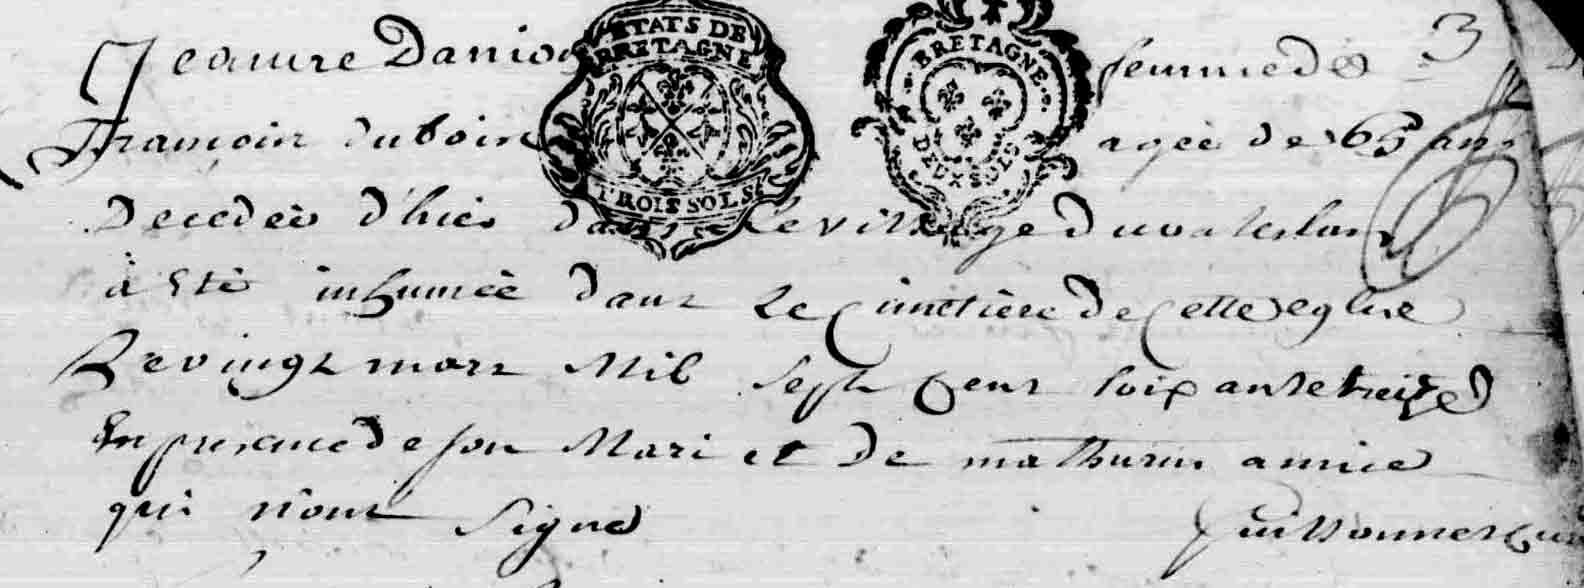 3
ÉTATS DE
BRETAGNE
TROIS SOLS
BRETAGNE
DEUX SOLS
Jeanne Danio femme de
François dubois agée de 65 ans
Decedée d'hier dans le village du
à été inhumée dans le Cimetière de Cette eglise
Le vingt mars Mil Sept Cent soixante treize
En presence de son Mari et de mathurin annice
qui n'ont signé